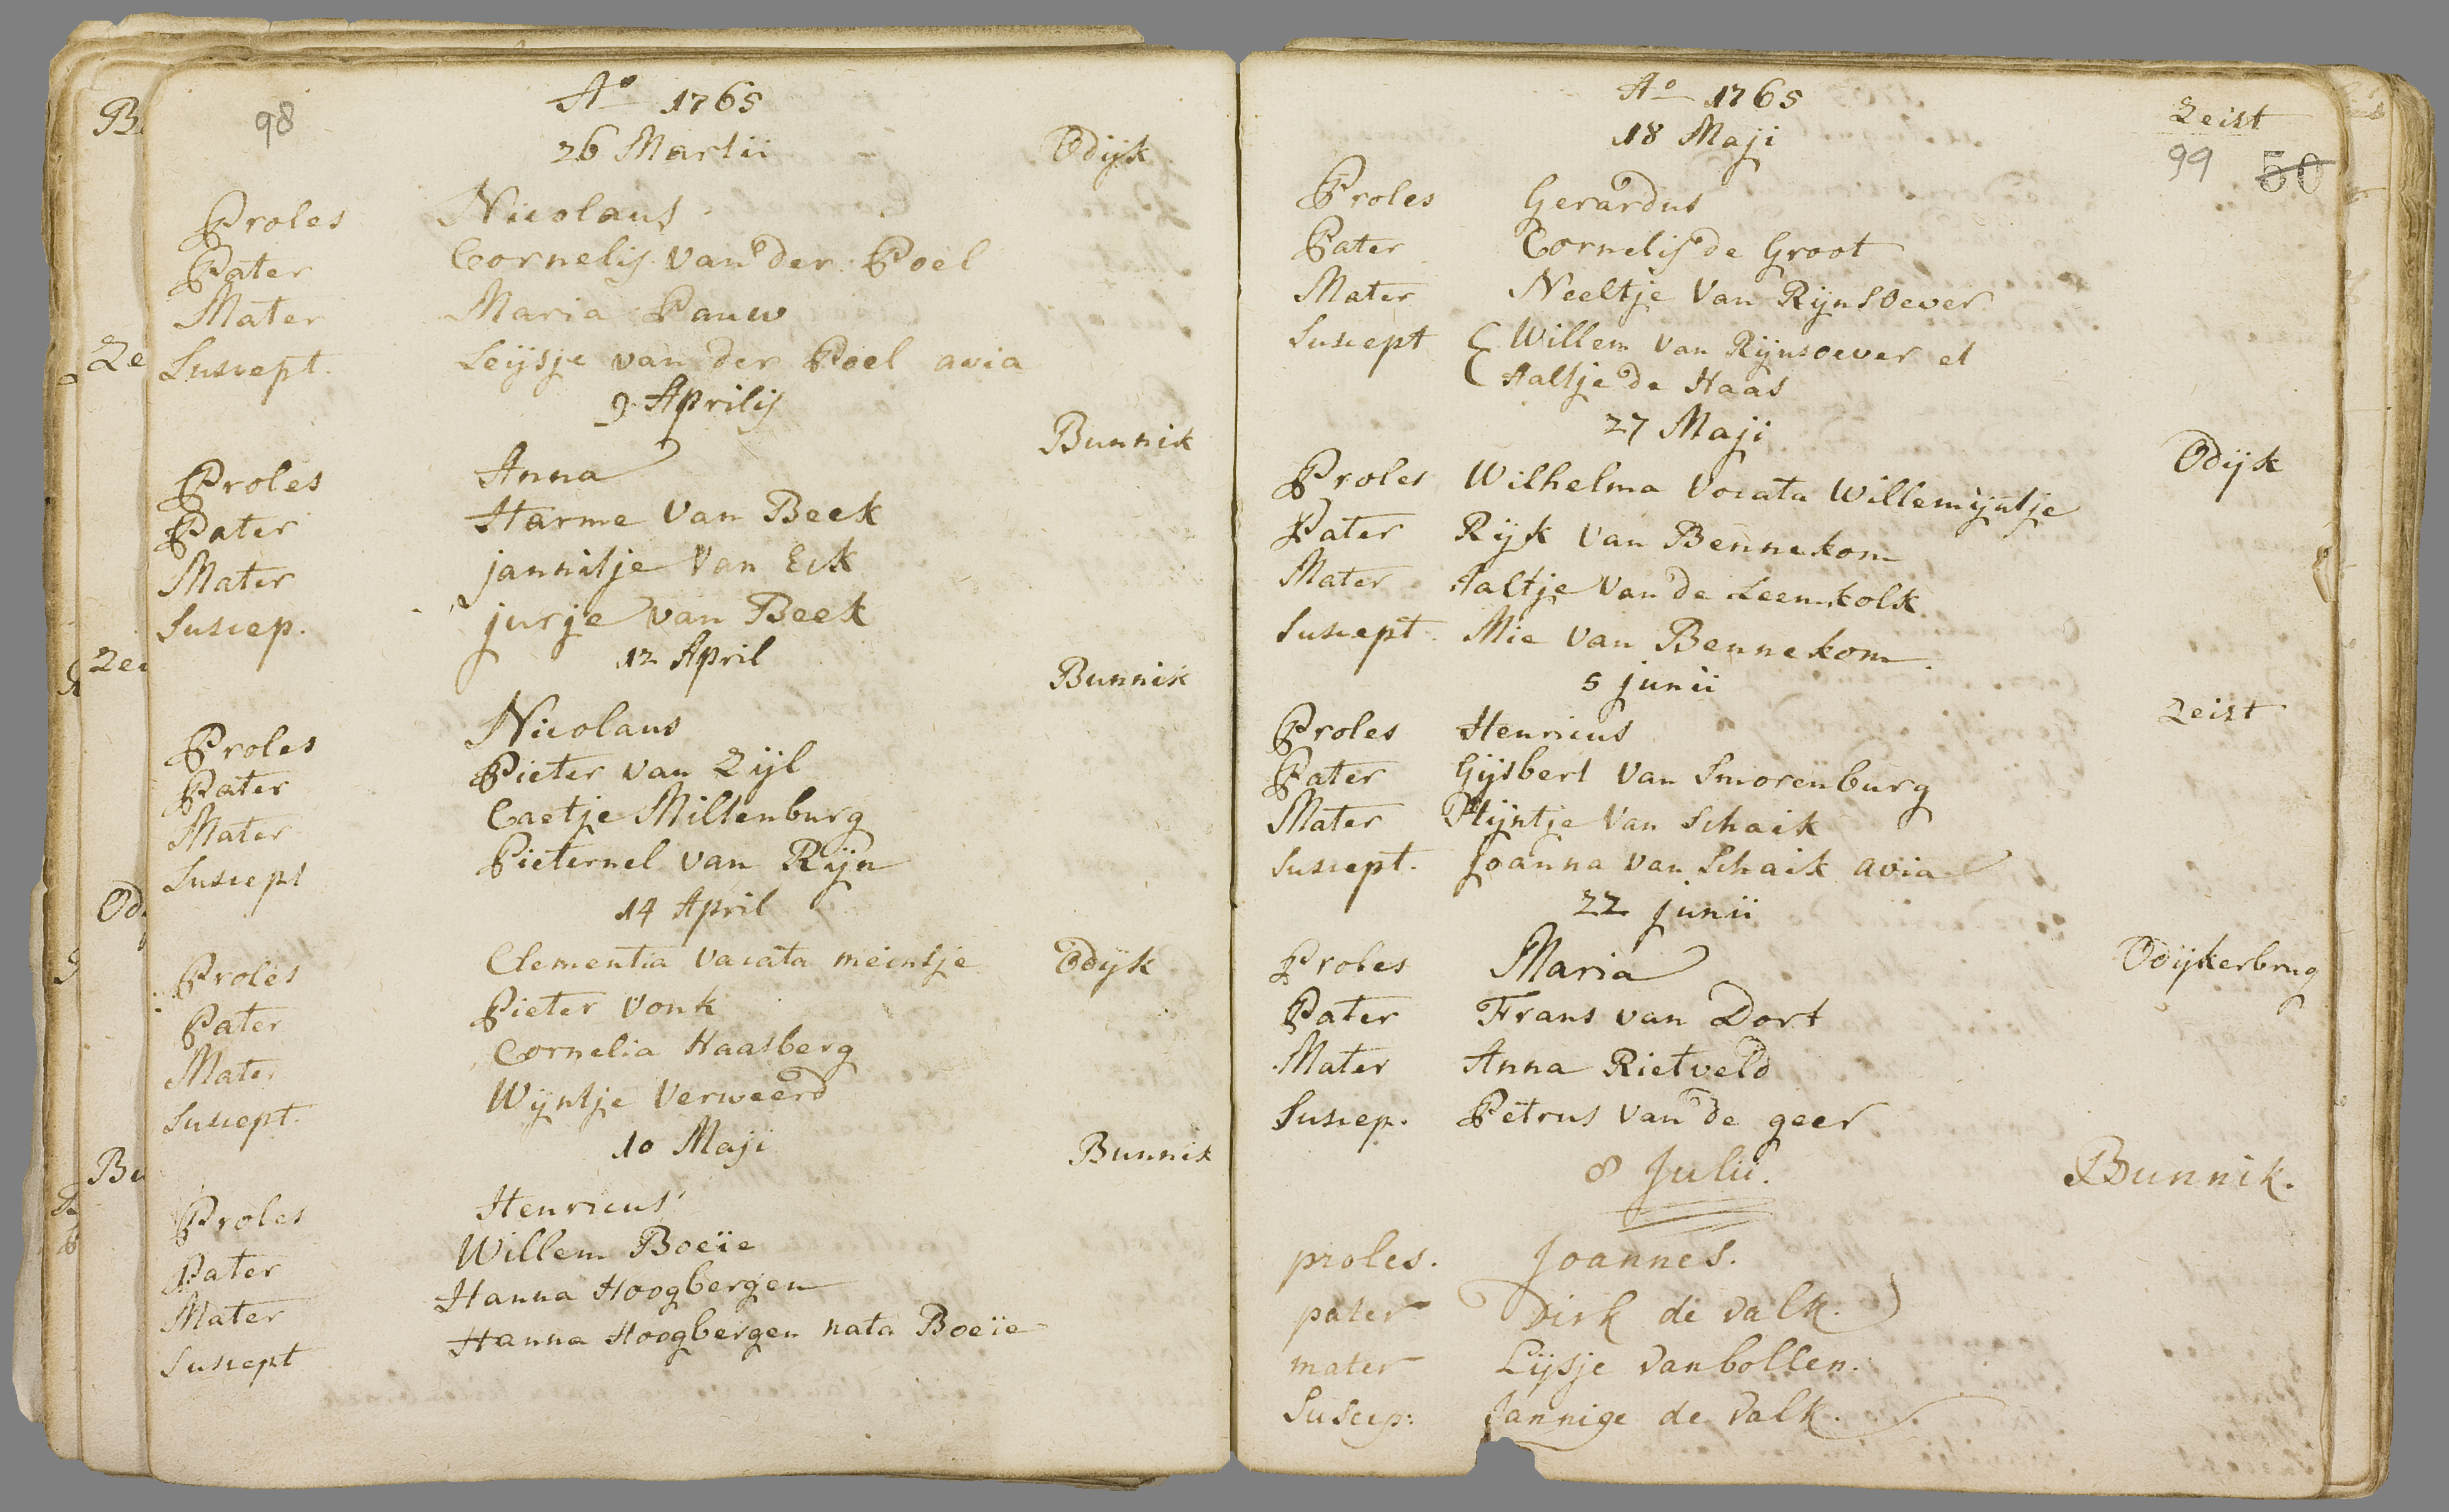 98
Aº 1765
26 Martii
Odijk
Proles Nicolaus
Pater Cornelis van der Poel
Mater Maria Pauw
Suscept. Leijsje van der Poel avia
9 Aprilis
Bunnik
Proles Anna
Pater Harme Van Beek
Mater jannitje Van Eck
Suscep. jurje van Beek
12 April
Bunnik
Proles Nicolaus
Pater Pieter van Zijl
Mater Caetje Miltenburg
Suscept Pieternel van Rijn
14 April
Proles Clementia vocata meintje Odijk
Pater Pieter Vonk
Mater Cornelia Haasberg
Suscept. Wijntje Verweerd
10 Maji
Bunnik
Proles Henricus
Pater Willem Boeïe
Mater Hanna Hoogbergen
Suscept Hanna Hoogbergen nata Boeïe
Aº 1765
Zeist
18 Maji
99 50
Proles Gerardus
Pater Cornelis de Groot
Mater Neeltje Van Rijnsoever
Suscept Willem Van Rijnsoever et
Aaltje de Haas
27 Maji
Odijk
Proles Wilhelma Vocata Willemijntje
Pater Rijk Van Bennekom
Mater Aaltje Van de Leemkolk
Suscept. Mie Van Bennekom
5 junii
Zeist
Proles Henricus
Pater Gijsbert Van Smorenburg
Mater Mijntje Van Schaik
Suscept. Joanna Van Schaik avia
22 junii
Proles Maria Odijkerbrug
Pater Frans van Dort
Mater Anna Rietveld
Suscep. Petrus Van de geer
8 Julii.
Bunnik.
proles. Joannes.
pater Dirk de valk.
mater Lijsje van bollen.
Suscep: Jannige de valk.